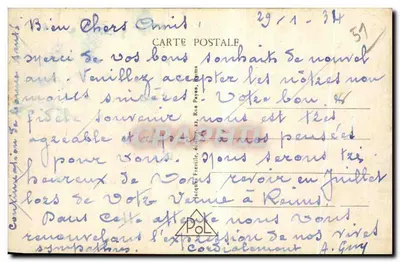 Bien Chers Amis, 29/1-34
CARTE POSTALE
51
Merci de vos bons souhaits de nouvel
ans. Veuillez accepter les nôtres non
moins sincères. Votre bon
fidèle souvenir nous est très
agréable et à nos pensées
pour vous. Nous serons très
heureux de Vous revoir en Juillet
lors de Votre Venue à Reims
Dans cette attente nous Vous
renouvelons l'expression de nos vives
sympathies. Cordialement
POL
Continuation de bonne santé